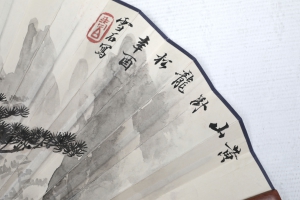 黄山卧龍松
辛酉
雪石寫